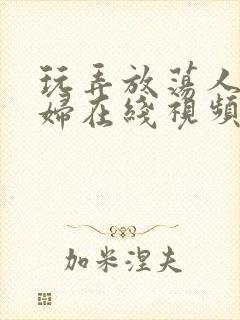 玩弄放荡人
婦在綫視頻
加米涅夫